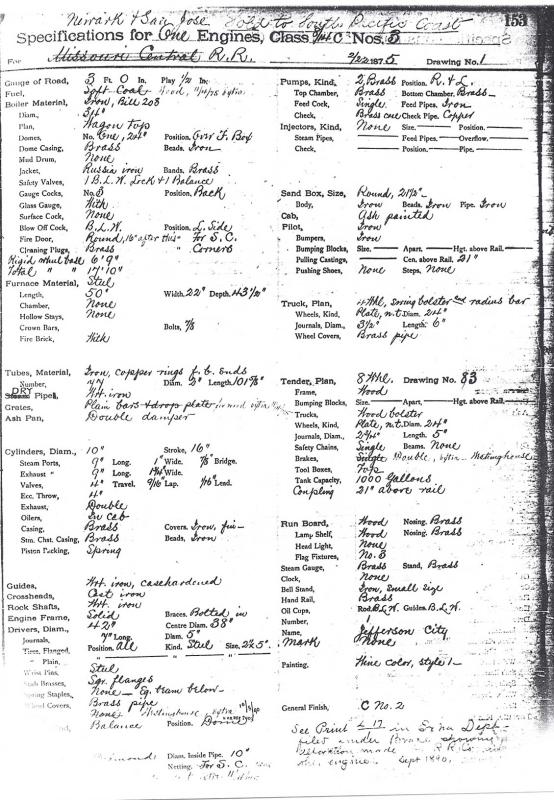 Newark & San Jose Sold to South Pacific Coast
153
Specifications for One Engines, Class 8/14 C Nos. 5
For Missouri Central R. R. 2/22 1875 Drawing No. 1
Gauge of Road, 3 Ft. 0 In. Play 1/2 In:
Fuel, Soft Coal
Boiler Material, Iron, Bill 208
Diam., 34"
Plan, Wagon top
Domes, No. One, 20½" Position. Over F. Box
Dome Casing, Brass Beads, Iron
Mud Drum, None
Jacket, Russia iron Bands, Brass
Safety Valves, 1 B.L.W. Lock & 1 Balance
Gauge Cocks, No. 3 Position, Back
Glass Gauge, With
Surface Cock, None
Blow Off Cock, B.L.W. Position, L. Side
Fire Door, Round, 16" after this For S.C.
Cleaning Plugs, Brass " Corners
Rigid wheel base 6' 9"
Total " " 17' 10"
Furnace Material, Steel
Length, 50" Width, 22" Depth, 43½"
Chamber, None
Hollow Stays, None
Crown Bars, Bolts, 7/8
Fire Brick, With
Tubes, Material, Iron, copper rings f. b. ends
Number, Diam. 2" Length, 101
DRY Pipe, Wrt. iron
Grates, Plain bars & drop plate
Ash Pan, Double damper
Cylinders, Diam., 10" Stroke, 16"
Steam Ports, 9" Long. 1" Wide. 7/8 Bridge.
Exhaust " 9" Long. Wide.
Valves, 4" Travel. 9/16 Lap. 1/16 Lead.
Ecc. Throw, 4"
Exhaust, Double
Oilers, In cab
Casing, Brass Covers, Iron, fin
Stm. Chst. Casing, Brass Beads, Iron
Piston Packing, Spring
Guides, Wrt. iron, casehardened
Crossheads, Cast iron
Rock Shafts, Wrt. iron
Engine Frame, Solid Braces, Bolted in
Drivers, Diam., 42" Centre Diam. 38"
Journals, 7" Long. Diam. 5"
Tires, Flanged, Position, All Kind, Steel Size,
" Plain, " " "
Wrist Pins, Steel
Stub Brasses, Sqr. flanges
Spring Staples, None — Eq. beam below
Wheel Covers, Brass pipe
None Westinghouse
Balance Position. Dome
Diam. Inside Pipe, 10"
Netting, For S.C.
Pumps, Kind, 2 Brass Position, R. & L.
Top Chamber, Brass Bottom Chamber, Brass
Feed Cock, Single Feed Pipes, Iron
Check, Brass case Check Pipe, Copper
Injectors, Kind, None Size, Position,
Steam Pipes, Feed Pipes, Overflow,
Check, Position, Pipe,
Sand Box, Size, Round, 21½"
Body, Iron Beads, Iron Pipe, Iron
Cab, Ash painted
Pilot, Iron
Bumpers, Iron
Bumping Blocks, Size, Apart, Hgt. above Rail,
Pulling Castings, Cen. above Rail, 21"
Pushing Shoes, None Steps, None
Truck, Plan, 4 Whl, swing bolster and radius bar
Wheels, Kind, Plate, n.t. Diam. 24"
Journals, Diam., 3½" Length, 6"
Wheel Covers, Brass pipe
Tender, Plan, 8 Whl. Drawing No. 83
Frame, Wood
Bumping Blocks, Size, Apart, Hgt. above Rail,
Trucks, Wood bolster
Wheels, Kind, Plate, n.t. Diam. 24"
Journals, Diam., 2¾" Length, 5"
Safety Chains, Single Beams, None
Brakes, Single Double, Westinghouse
Tool Boxes, Top
Tank Capacity, 1000 Gallons
Coupling 21" above rail
Run Board, Wood Nosing, Brass
Lamp Shelf, Wood Nosing, Brass
Head Light, None
Flag Fixtures, No. 3
Steam Gauge, Brass Stand, Brass
Clock, None
Bell Stand, Iron, small size
Hand Rail, Brass
Oil Cups, Rod, B.L.W. Guides, B.L.W.
Number, 1
Name, Jefferson City
Mark None
Painting, Wine color, style 1
General Finish, C No. 2
See Print in Dept
filed under Brake showing
alteration made R.R. Co.
engine. Sept 1890.